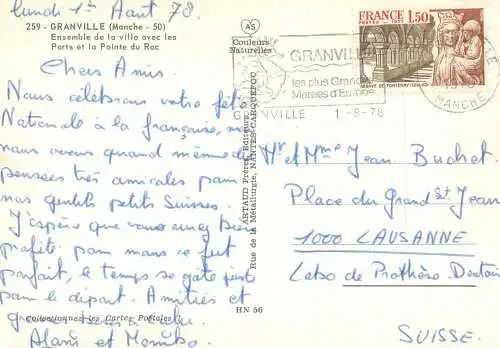 lundi 1er Août 78.
259 - GRANVILLE (Manche - 50)
Ensemble de la ville avec les
Ports et la Pointe du Roc
Chers Amis.
Nous célébrons votre fête
Nationale à la française,
nous avons quand même des
pensées très amicales pour
nos gentils petits Suisses.
J'espère que vous avez bien
profité. pour nous ce fut
parfait, le temps se gâte juste
pour le départ. Amitiés et
Collectionnez les Cartes Postales !
Alain et
AS
Couleurs
Naturelles
ARTAUD Frères, Editeurs
Rue de la Métallurgie, NANTES-CARQUEFOU
HN 56
GRANVILLE
les plus Grandes
Marées d'Europe
GRANVILLE 1-8-78
MANCHE
FRANCE 1,50
POSTES 1977
ABBAYE DE FONTENAY
Mr et Mme Jean Buchet
Place du Grand St Jean
1000 LAUSANNE
Labo de Prothèse Dentaire
SUISSE.